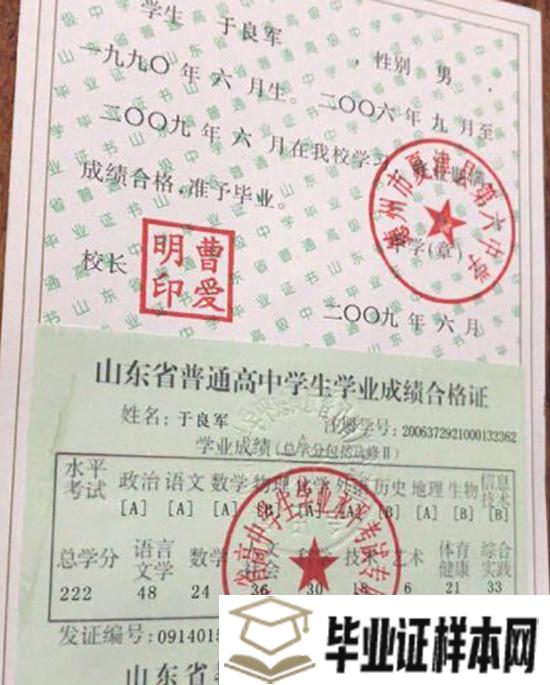 学生 于良军 ，性别 男 ，
一九九〇年 六 月生。二〇〇六年 九 月至
二〇〇九年 六 月在我校学
成绩合格,准予毕业。
德州市夏津县第六中学
中学(章)
校长
曹爱明印
二〇〇九年 六月
山东省普通高中学生学业成绩合格证
姓名:于良军 注册学号:2006372921000132362
学业成绩(总学分包括选修Ⅱ)
水平考试 政治 语文 数学 物理 化学 外语 历史 地理 生物 信息技术
[A] [A] [A] [B] [A] [B] [B]
总学分 语言文学 数学 技术 艺术 体育健康 综合实践
222 48 24 36 30 18 6 21 33
发证编号:0914015
山东省
毕业证样本网